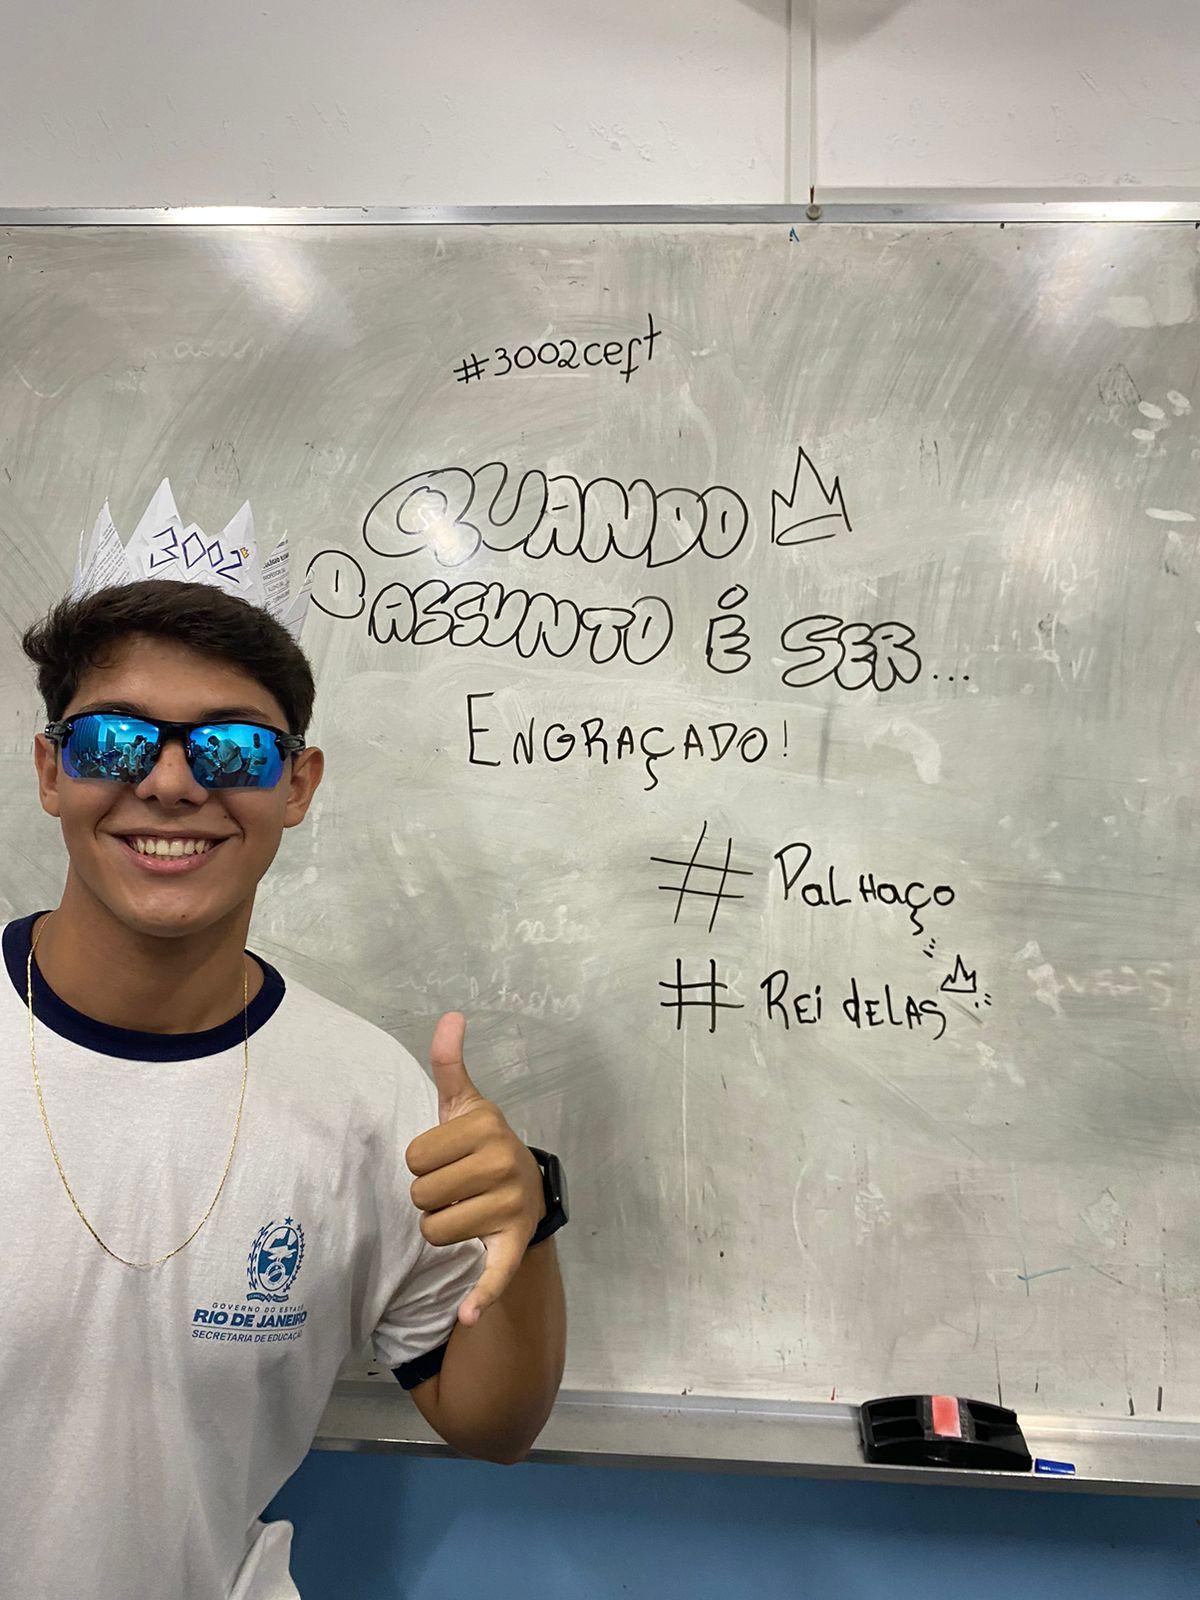 #3002ceft
QUANDO
O ASSUNTO É SER...
ENGRAÇADO!
# PaLHaço
# REi dELAS
3002
GOVERNO DO ESTADO
RIO DE JANEIRO
SECRETARIA DE EDUCAÇÃO